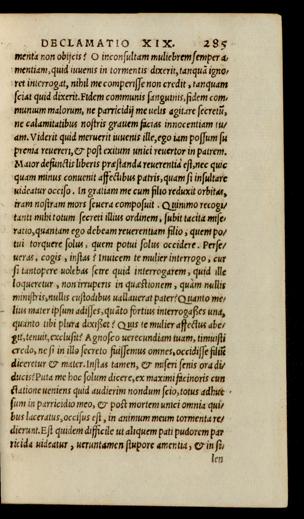 DECLAMATIO XIX. 285
menta non obijcis? O inconsultam muliebrem semper a-
mentiam, quid iuuenis in tormentis dixerit, tanquā igno-
ret interrogat, nihil me comperisse non credit, tanquam
sciat quid dixerit. Fidem communis sanguinis, fidem com-
munum malorum, ne parricidij me uelis agitare secretū,
ne calamitatibus nostris grauem facias innocentiam tu-
am. Viderit quid meruerit iuuenis ille, ego iam possum su
prema reuereri, & post exitum unici reuertor in patrem.
Maior defunctis liberis præstanda reuerentia est, nec quic
quam minus conuenit affectibus patris, quam si insultare
uideatur occiso. In gratiam me cum filio reduxit orbitas,
iram nostram mors seuera composuit. Quinimo recogi-
tanti mihi totum secreti illius ordinem, subit tacita mise-
ratio, quantam ego debeam reuerentiam filio, quem po-
tui torquere solus, quem potui solus occidere. Perse-
ueras, cogis, instas? Inuicem te mulier interrogo, cur
si tantopere uolebas scire quid interrogarem, quid ille
loqueretur, non irruperis in quæstionem, quàm nullis
ministris, nullis custodibus uallauerat pater? Quanto me-
lius mater ipsum adisses, quāto fortius interrogasses una,
quanto tibi plura dixisset? Quis te mulier affectus abe-
git, tenuit, exclusit? Agnosco uerecundiam tuam, timuisti
credo, ne si in illo secreto fuissemus omnes, occidisse filiū
diceretur & mater. Instas tamen, & miseri senis ora di-
ducis? Puta me hoc solum dicere, ex maximi facinoris cun
ctatione ueniens quid audierim nondum scio, totus adhuc
sum in parricidio meo, & post mortem unici omnia qui-
bus laceratus, occisus est, in animum meum tormenta re-
dierunt. Est quidem difficile ut aliquem pati pudorem par
ricida uideatur, ueruntamen stupore amentia, & in si-
len